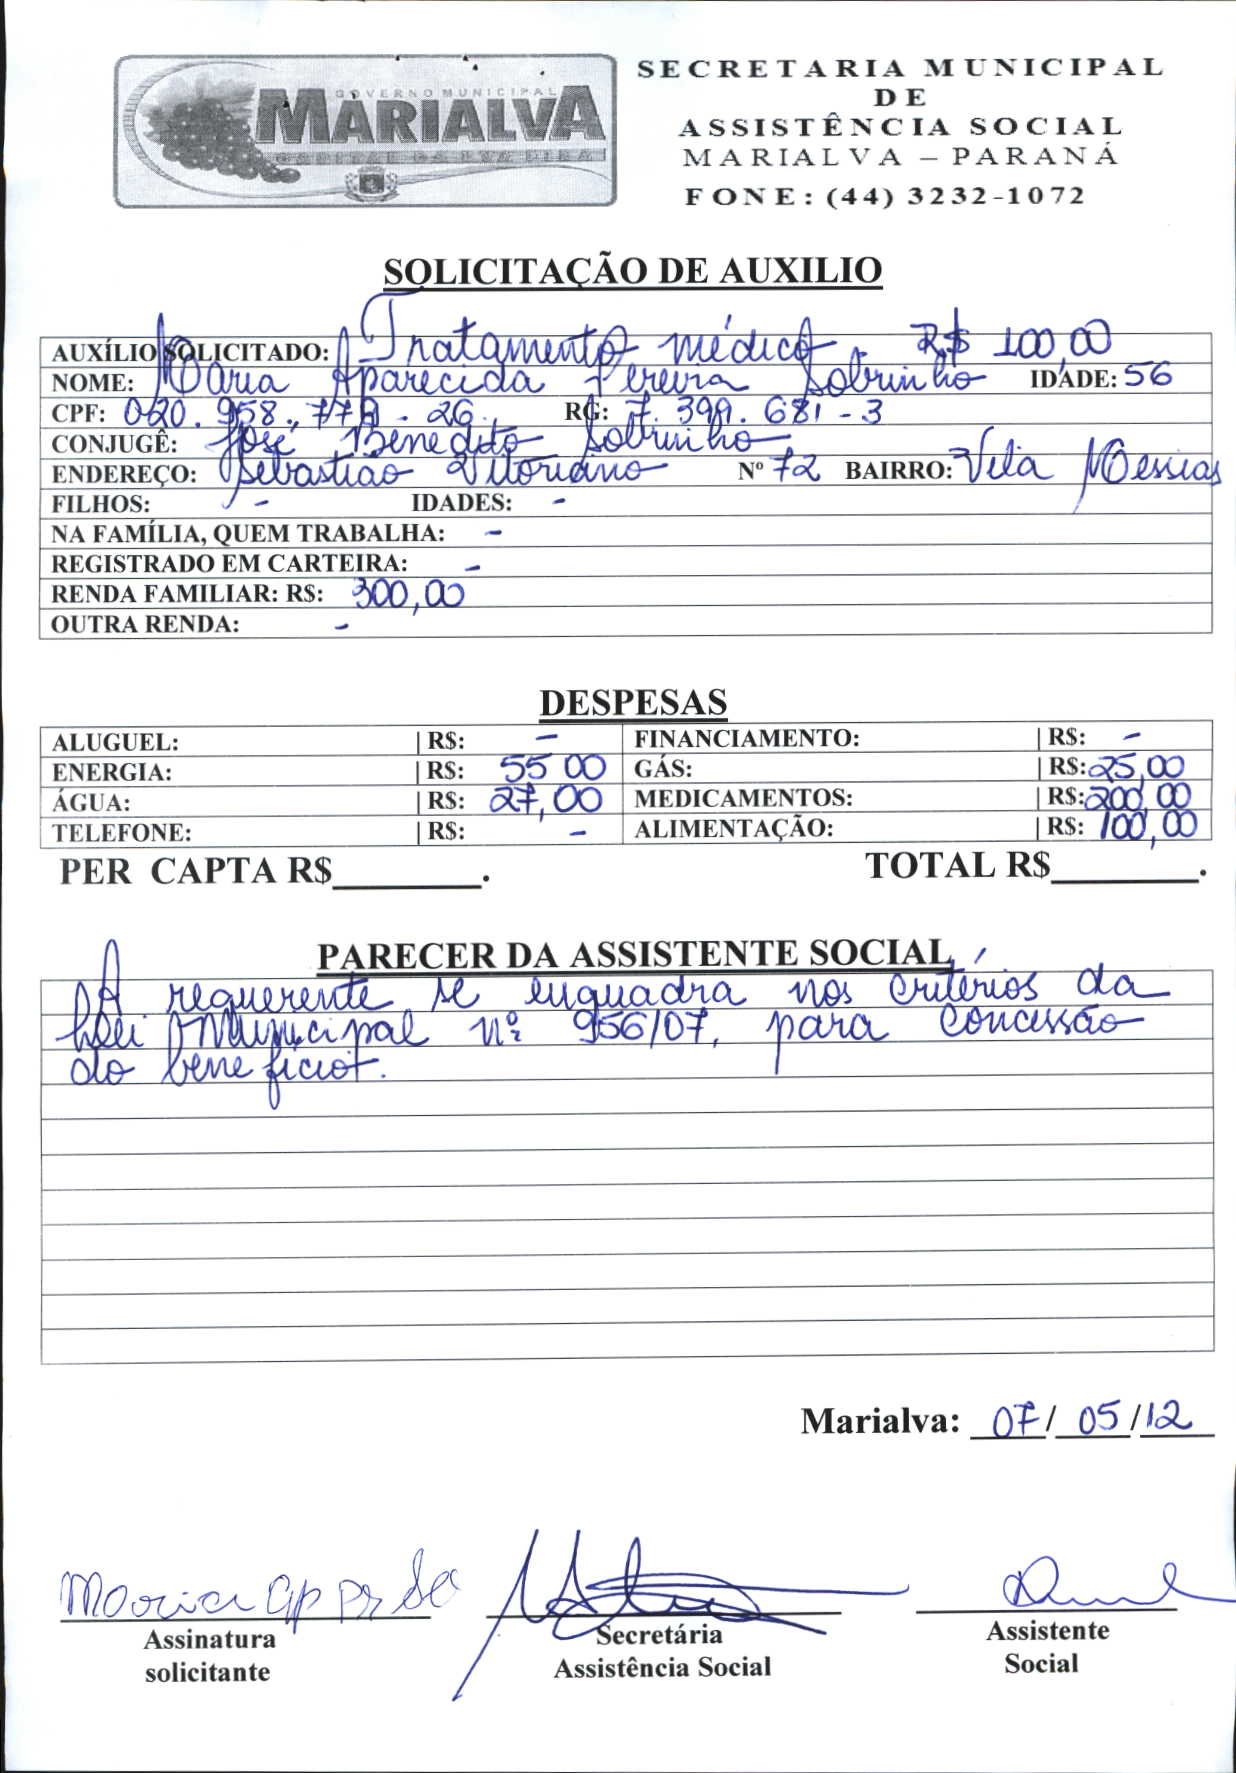 GOVERNO MUNICIPAL
MARIALVA
CAPITAL DA UVA FINA
SECRETARIA MUNICIPAL
DE
ASSISTÊNCIA SOCIAL
MARIALVA – PARANÁ
FONE: (44) 3232-1072
SOLICITAÇÃO DE AUXILIO
AUXÍLIO SOLICITADO: Tratamento médico R$ 100,00
NOME: Maria Aparecida Pereira Sobrinho IDADE: 56
CPF: 020.958.779-26 RG: 7.399.681-3
CONJUGÊ: José Benedito Sobrinho
ENDEREÇO: Sebastião Vitoriano Nº 72 BAIRRO: Vila Messias
FILHOS: - IDADES: -
NA FAMÍLIA, QUEM TRABALHA: -
REGISTRADO EM CARTEIRA: -
RENDA FAMILIAR: R$: 300,00
OUTRA RENDA: -
DESPESAS
ALUGUEL: | R$: - FINANCIAMENTO: | R$: -
ENERGIA: | R$: 55 00 GÁS: | R$: 25,00
ÁGUA: | R$: 27,00 MEDICAMENTOS: | R$: 200,00
TELEFONE: | R$: - ALIMENTAÇÃO: | R$: 100,00
PER CAPTA R$________. TOTAL R$________.
PARECER DA ASSISTENTE SOCIAL
A requerente se enquadra nos critérios da
Lei Municipal nº 956/07, para concessão
do benefício.
Marialva: 07/ 05 /12
Maria ap
Assinatura Secretária Assistente
solicitante Assistência Social Social